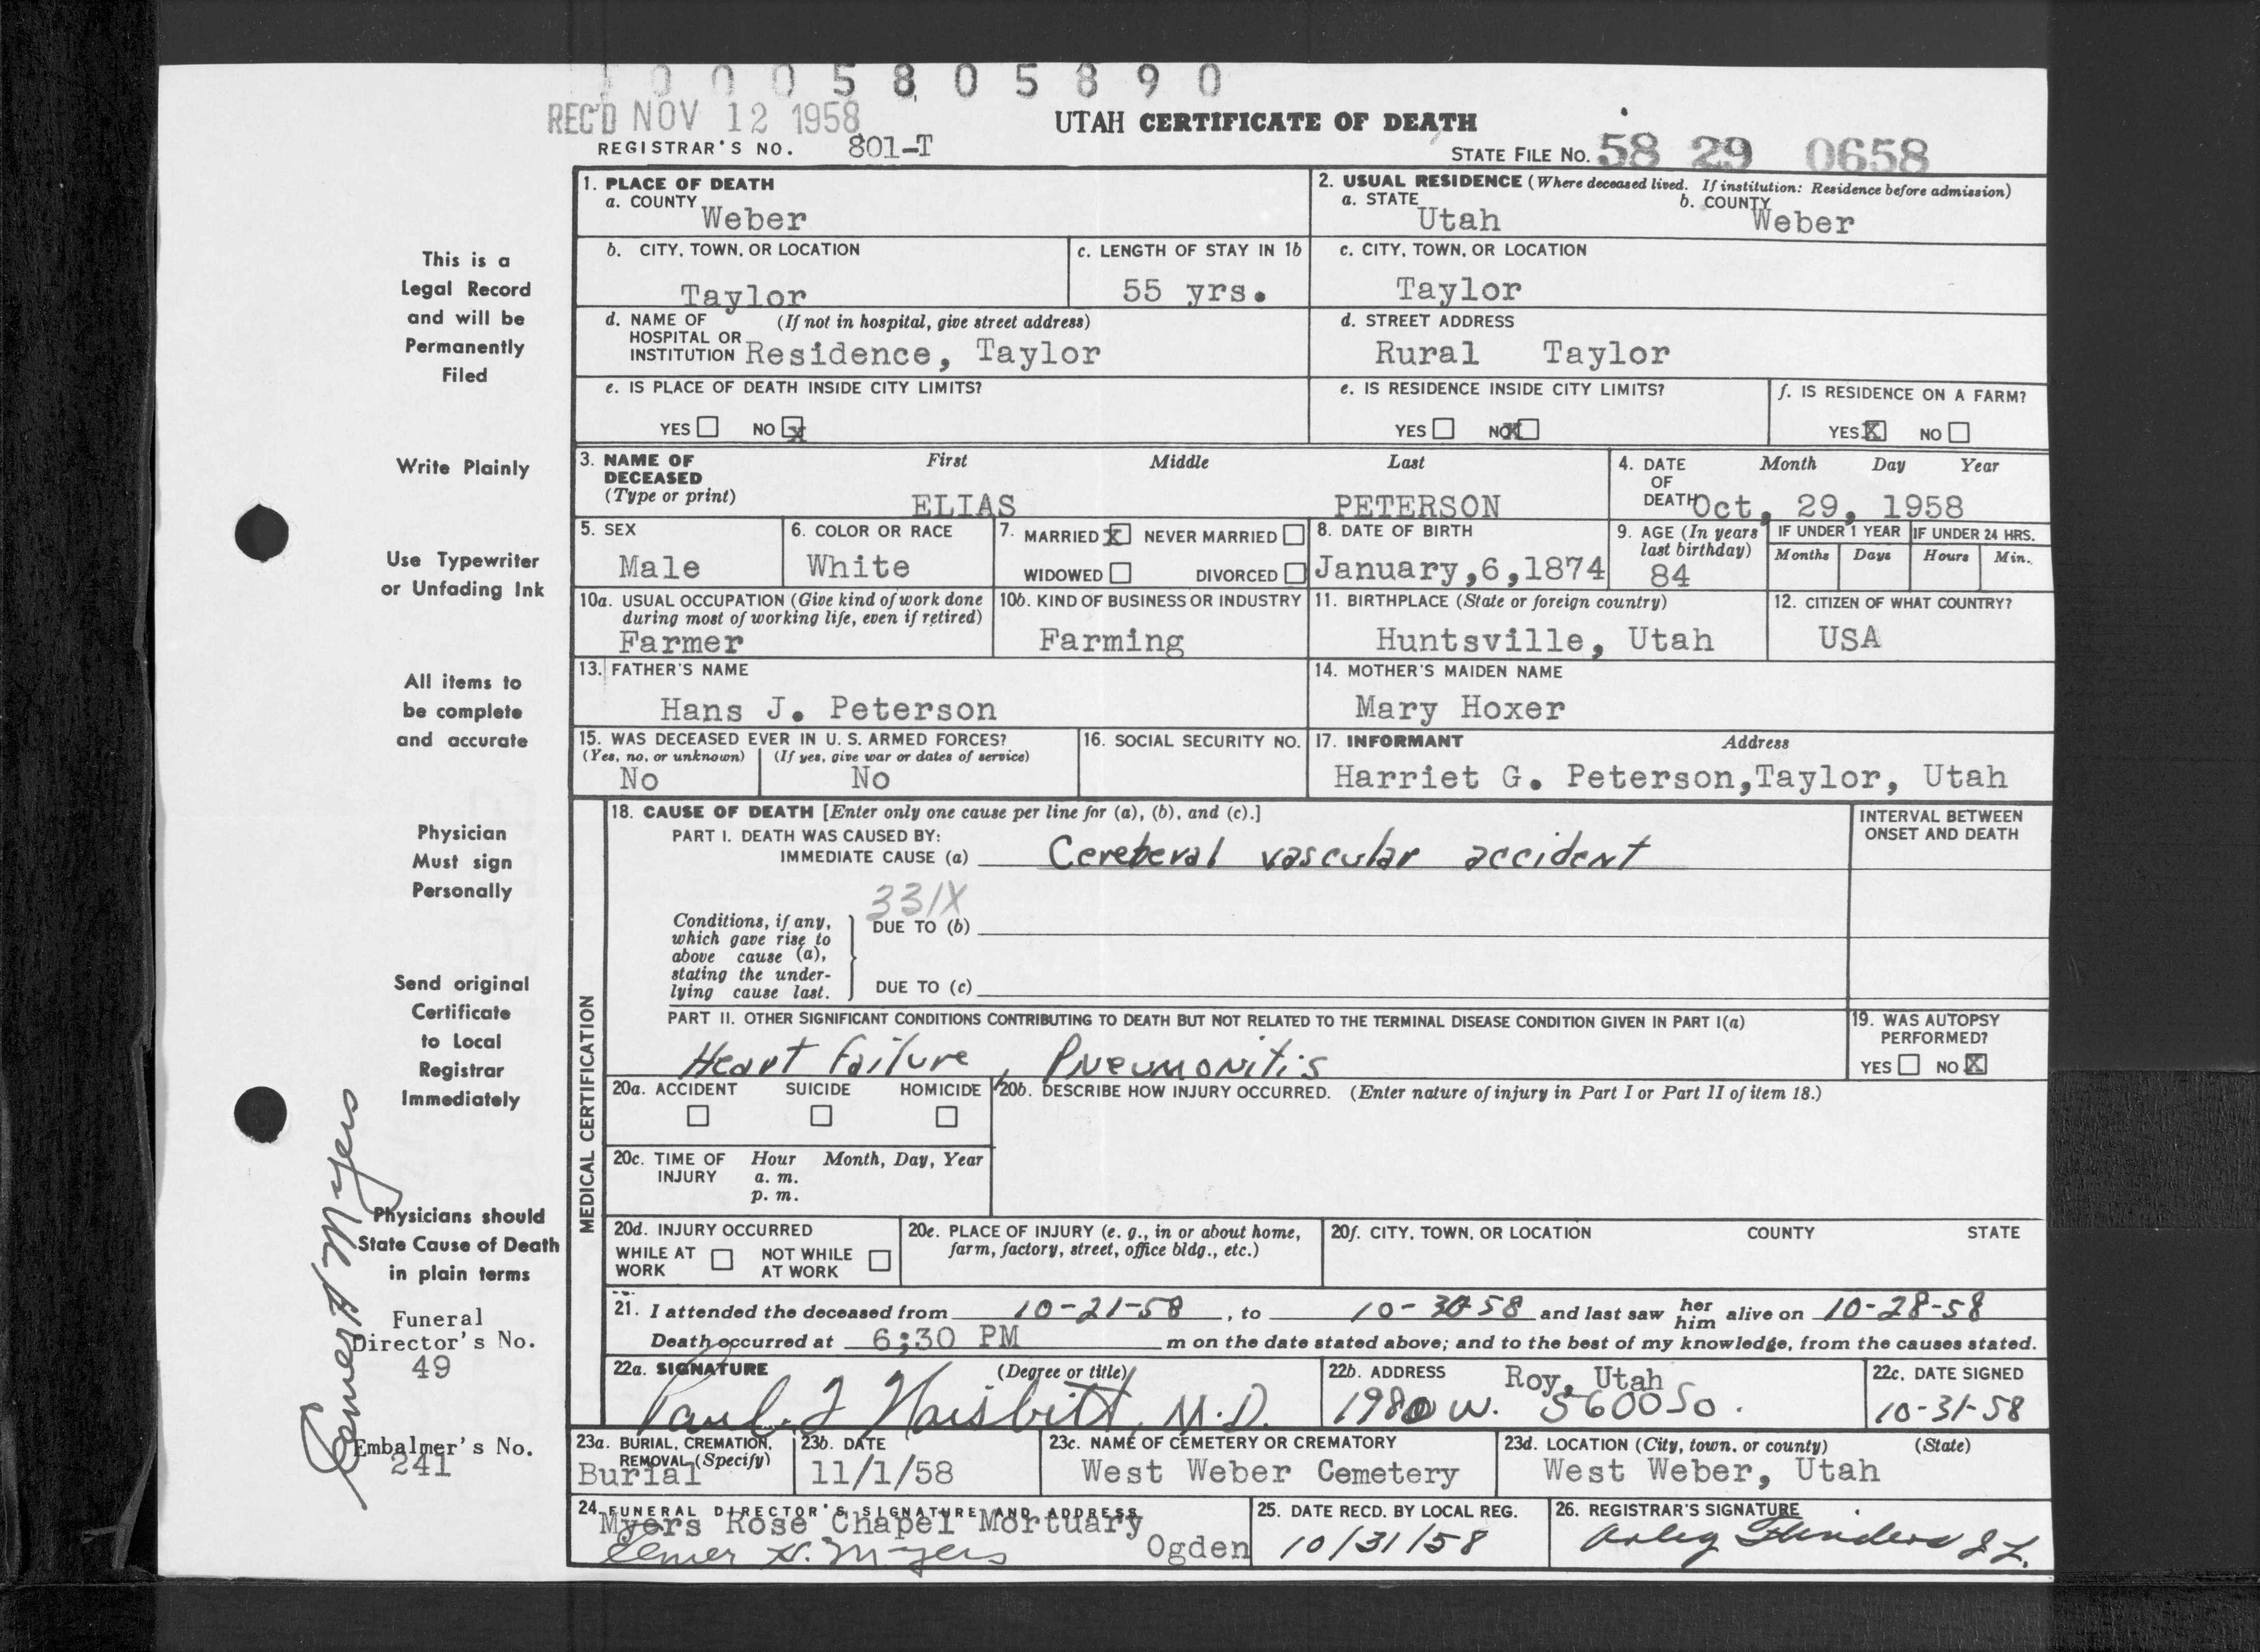 1 0 0 0 5 8 0 5 8 9 0
REC'D NOV 12 1958
UTAH CERTIFICATE OF DEATH
REGISTRAR'S NO. 801-T
STATE FILE No. 58 29 0658
1. PLACE OF DEATH
a. COUNTY Weber
2. USUAL RESIDENCE (Where deceased lived. If institution: Residence before admission)
a. STATE Utah b. COUNTY Weber
b. CITY, TOWN, OR LOCATION Taylor
c. LENGTH OF STAY IN 1b 55 yrs.
c. CITY, TOWN, OR LOCATION Taylor
d. NAME OF (If not in hospital, give street address)
HOSPITAL OR
INSTITUTION Residence, Taylor
d. STREET ADDRESS
Rural Taylor
e. IS PLACE OF DEATH INSIDE CITY LIMITS?
YES NO X
e. IS RESIDENCE INSIDE CITY LIMITS?
YES NO X
f. IS RESIDENCE ON A FARM?
YES X NO
3. NAME OF DECEASED (Type or print)
First Middle Last
ELIAS PETERSON
4. DATE OF DEATH Month Day Year
Oct, 29, 1958
5. SEX Male
6. COLOR OR RACE White
7. MARRIED X NEVER MARRIED
WIDOWED DIVORCED
8. DATE OF BIRTH
January,6,1874
9. AGE (In years last birthday) 84
IF UNDER 1 YEAR Months Days
IF UNDER 24 HRS. Hours Min.
10a. USUAL OCCUPATION (Give kind of work done
during most of working life, even if retired)
Farmer
10b. KIND OF BUSINESS OR INDUSTRY
Farming
11. BIRTHPLACE (State or foreign country)
Huntsville, Utah
12. CITIZEN OF WHAT COUNTRY?
USA
13. FATHER'S NAME
Hans J. Peterson
14. MOTHER'S MAIDEN NAME
Mary Hoxer
15. WAS DECEASED EVER IN U. S. ARMED FORCES?
(Yes, no, or unknown) (If yes, give war or dates of service)
No No
16. SOCIAL SECURITY NO.
17. INFORMANT Address
Harriet G. Peterson,Taylor, Utah
MEDICAL CERTIFICATION
18. CAUSE OF DEATH [Enter only one cause per line for (a), (b), and (c).]
INTERVAL BETWEEN
ONSET AND DEATH
PART I. DEATH WAS CAUSED BY:
IMMEDIATE CAUSE (a) Cereberal vascular accident
331X
Conditions, if any,
which gave rise to
above cause (a),
stating the under-
lying cause last.
DUE TO (b)
DUE TO (c)
PART II. OTHER SIGNIFICANT CONDITIONS CONTRIBUTING TO DEATH BUT NOT RELATED TO THE TERMINAL DISEASE CONDITION GIVEN IN PART I(a)
Heart failure, Pneumonitis
19. WAS AUTOPSY
PERFORMED?
YES NO X
20a. ACCIDENT SUICIDE HOMICIDE
20b. DESCRIBE HOW INJURY OCCURRED. (Enter nature of injury in Part I or Part II of item 18.)
20c. TIME OF INJURY Hour Month, Day, Year
a. m.
p. m.
20d. INJURY OCCURRED
WHILE AT WORK NOT WHILE AT WORK
20e. PLACE OF INJURY (e. g., in or about home,
farm, factory, street, office bldg., etc.)
20f. CITY, TOWN, OR LOCATION COUNTY STATE
21. I attended the deceased from 10-21-58, to 10-30-58 and last saw her him alive on 10-28-58
Death occurred at 6;30 PM m on the date stated above; and to the best of my knowledge, from the causes stated.
22a. SIGNATURE (Degree or title)
Paul J Naisbitt, M.D.
22b. ADDRESS Roy, Utah
1980 W. 5600 So.
22c. DATE SIGNED
10-31-58
23a. BURIAL, CREMATION,
REMOVAL (Specify)
Burial
23b. DATE
11/1/58
23c. NAME OF CEMETERY OR CREMATORY
West Weber Cemetery
23d. LOCATION (City, town, or county) (State)
West Weber, Utah
24. FUNERAL DIRECTOR'S SIGNATURE AND ADDRESS
Myers Rose Chapel Mortuary
Elmer H. Myers Ogden
25. DATE RECD. BY LOCAL REG.
10/31/58
26. REGISTRAR'S SIGNATURE
This is a
Legal Record
and will be
Permanently
Filed
Write Plainly
Use Typewriter
or Unfading Ink
All items to
be complete
and accurate
Physician
Must sign
Personally
Send original
Certificate
to Local
Registrar
Immediately
Physicians should
State Cause of Death
in plain terms
Funeral
Director's No.
49
Embalmer's No.
241
Elmer H Myers